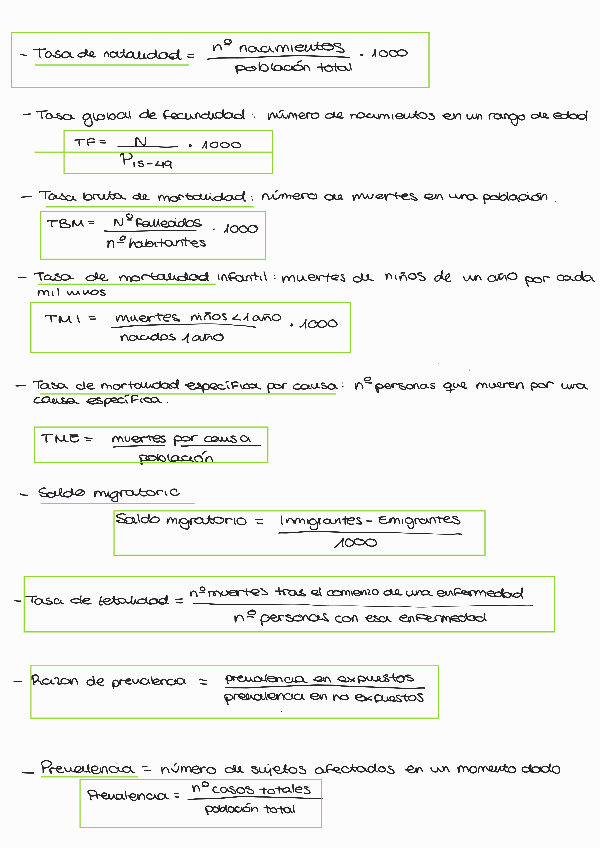 - Tasa de natalidad = nº nacimientos / población total · 1000
- Tasa global de fecundidad: número de nacimientos en un rango de edad
TF = N / P15-49 · 1000
- Tasa bruta de mortalidad: número de muertes en una población.
TBM = Nº fallecidos / nº habitantes · 1000
- Tasa de mortalidad infantil: muertes de niños de un año por cada
mil vivos
TMI = muertes niños < 1 año / nacidos 1 año · 1000
- Tasa de mortalidad específica por causa: nº personas que mueren por una
causa específica.
TME = muertes por causa / población
- Saldo migratorio
Saldo migratorio = Inmigrantes - Emigrantes / 1000
- Tasa de letalidad = nº muertes tras el comienzo de una enfermedad / nº personas con esa enfermedad
- Razon de prevalencia = prevalencia en expuestos / prevalencia en no expuestos
- Prevalencia = número de sujetos afectados en un momento dado
Prevalencia = nº casos totales / población total